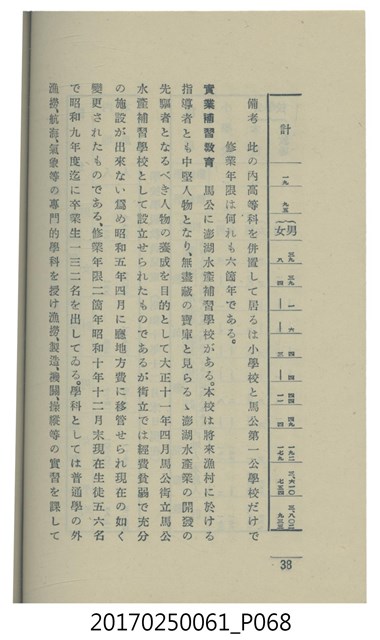 計
男
女
備考　此の內高等科を併置して居るは小學校と馬公第一公學校だけで
修業年限は何れも六箇年である。
實業補習敎育　馬公に澎湖水產補習學校がある。本校は將來漁村に於ける
指導者とも中堅人物となり、無盡藏の寶庫と見らるゝ澎湖水產業の開發の
先驅者となるべき人物の養成を目的として大正十一年四月馬公街立馬公
水產補習學校として設立せられたものであるが街立では經費貧弱で充分
の施設が出來ない爲め昭和五年四月に廳地方費に移管せられ現在の如く
變更されたものである、修業年限二箇年昭和十年十二月末現在生徒五六名
で昭和九年度迄に卒業生一三二名を出してゐる。學科としては普通學の外
漁撈、航海、氣象等の專門的學科を授け漁撈、製造、機關、操縱等の實習を課して
38
20170250061_P068